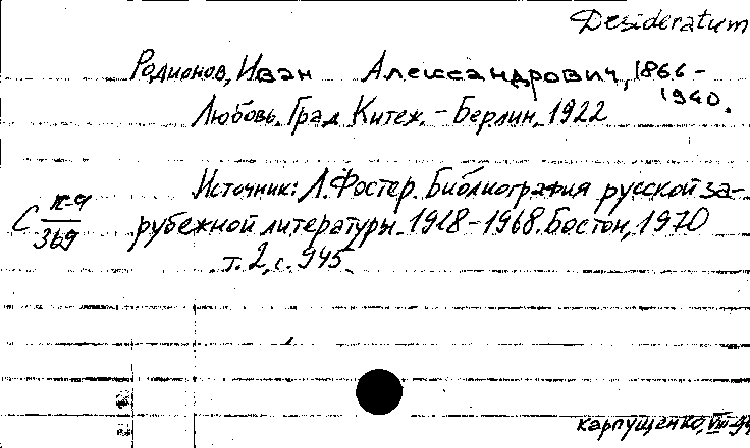 Desideratum
Родионов, Иван Александрович, 1866-
1940.
Любовь. Град Китеж. - Берлин, 1922
Источник: Л. Фостер. Библиография русской за-
рубежной литературы. 1918-1968. Бостон, 1970
т. 2, с. 945.
С п-9
369
Карпущенко, VIII-